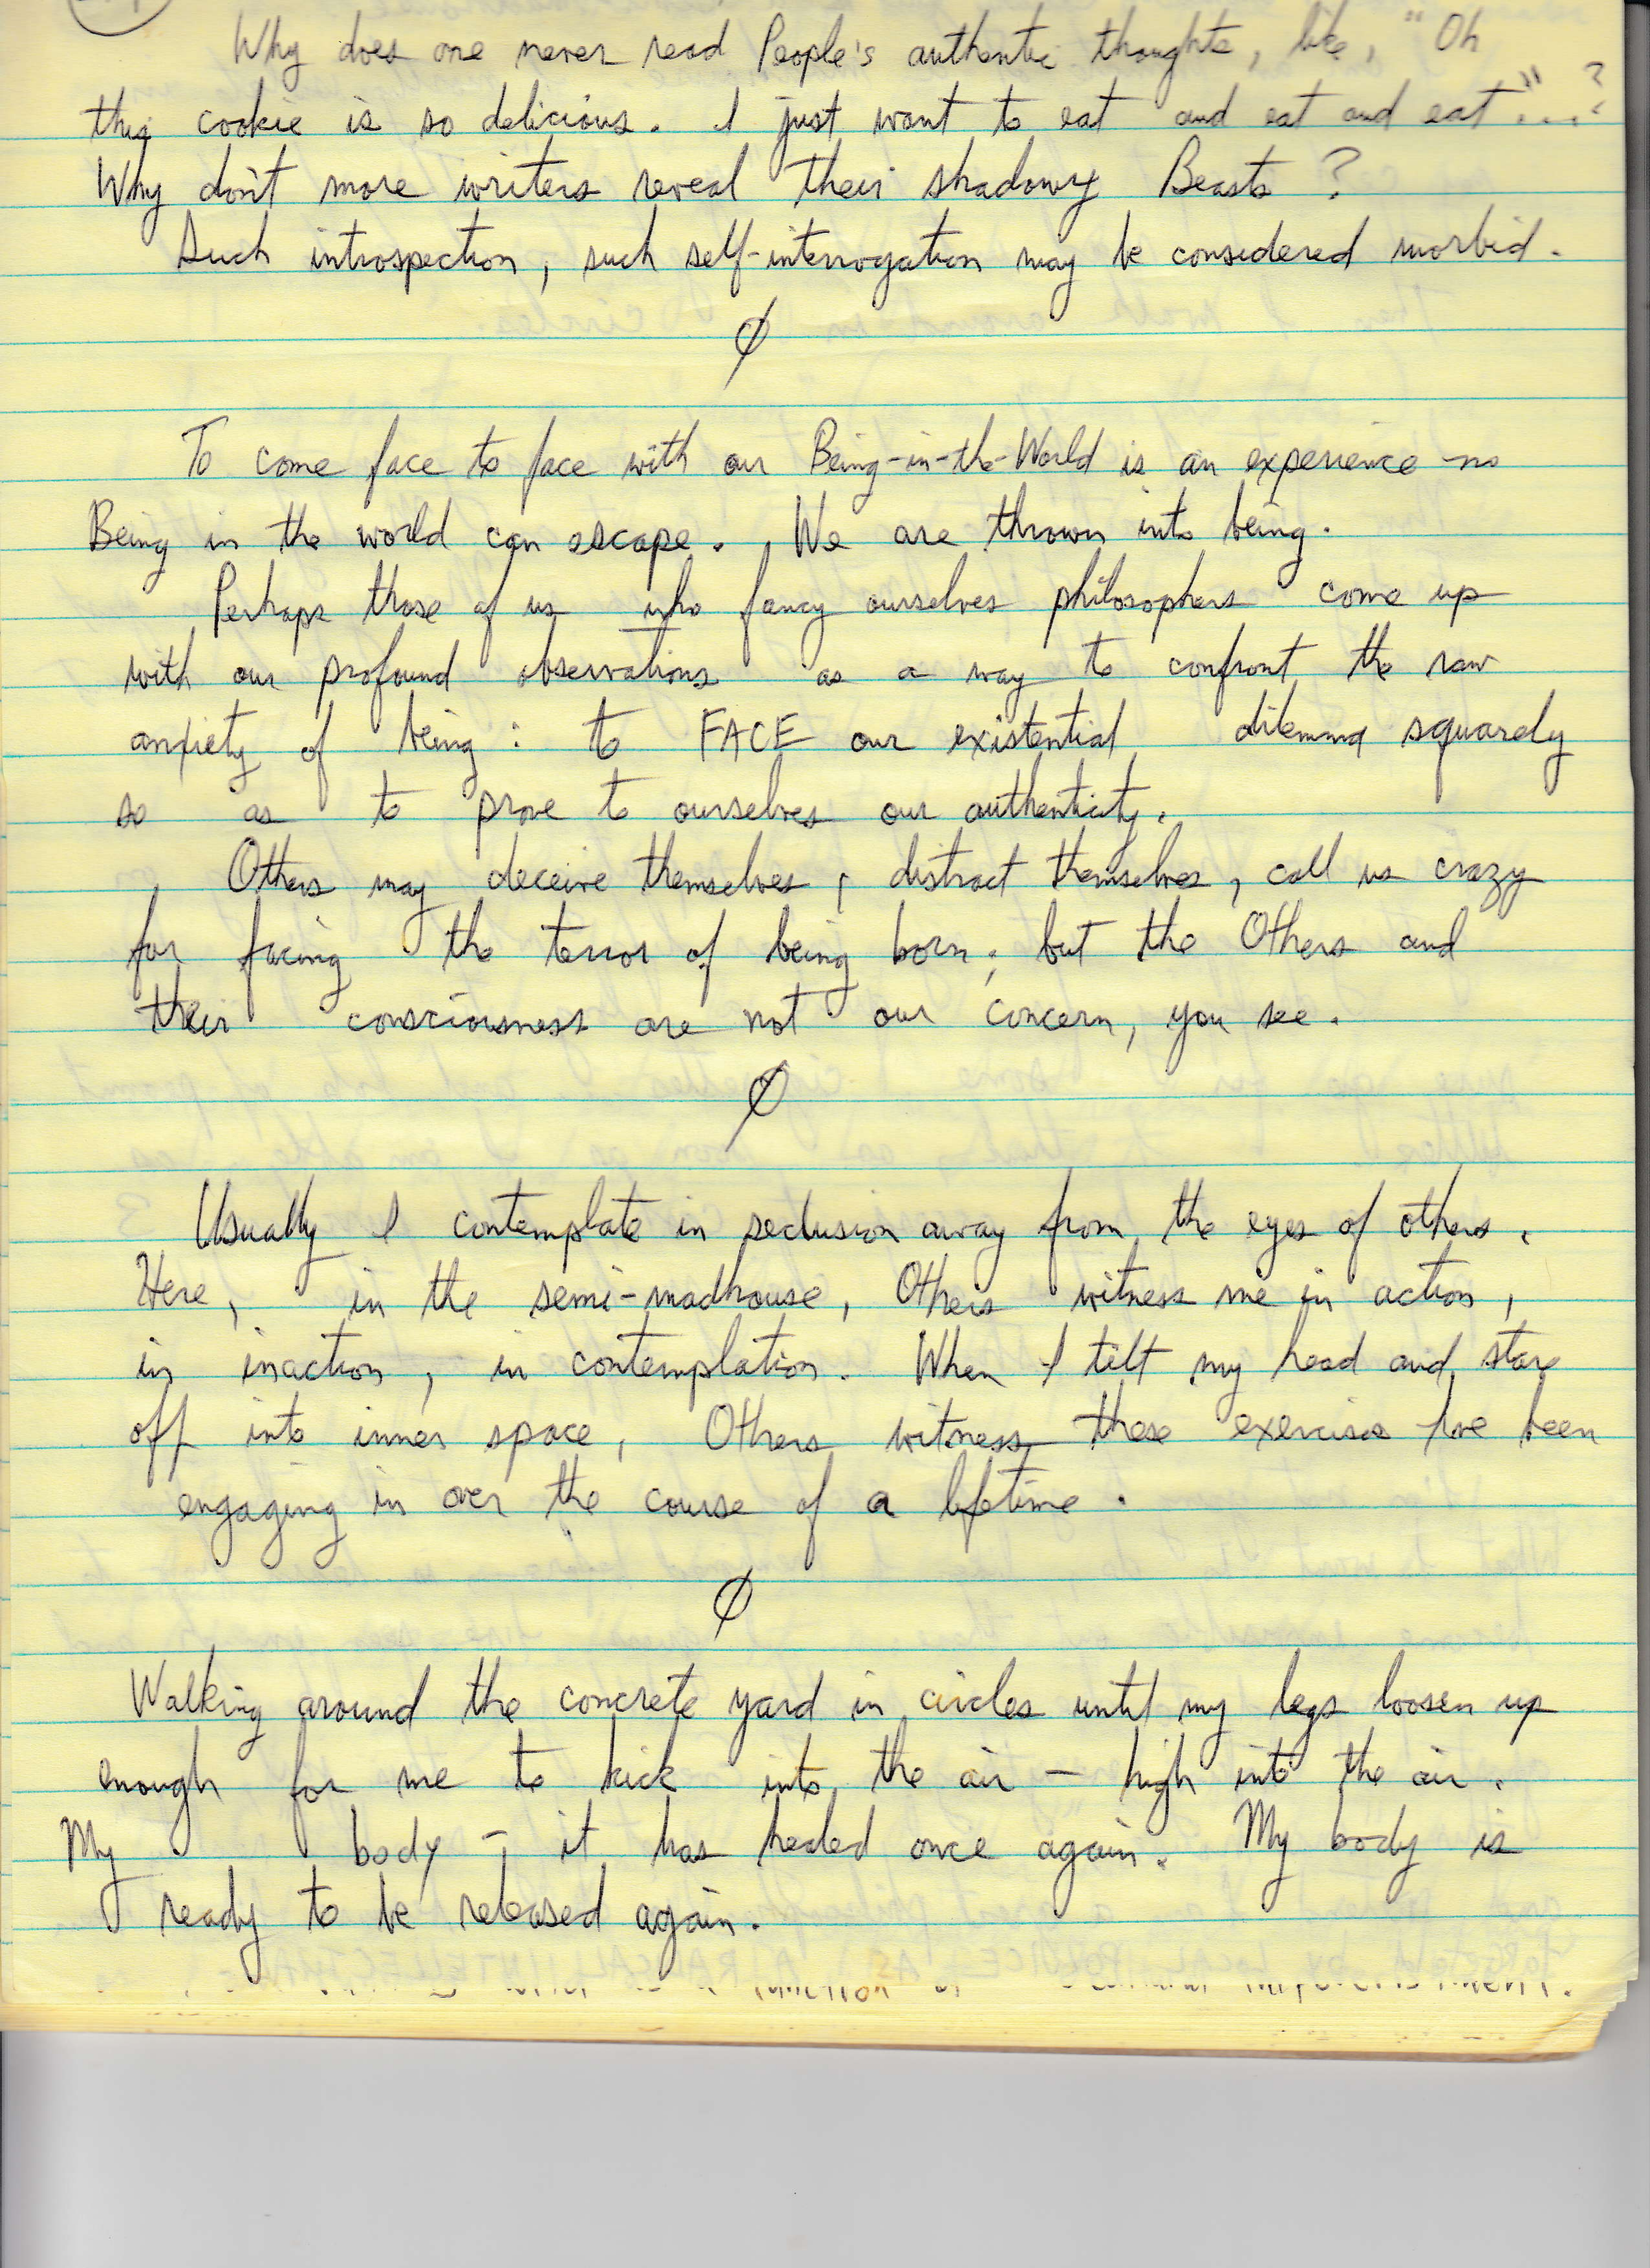 Why does one never read People's authentic thoughts, like, "Oh
this cookie is so delicious. I just want to eat and eat and eat"...?
Why don't more writers reveal their shadowy Beasts?
Such introspection, such self-interrogation may be considered morbid.
Ø
To come face to face with our Being-in-the-World is an experience no
Being in the world can escape. We are thrown into being.
Perhaps those of us who fancy ourselves philosophers come up
with our profound observations as a way to confront the raw
anxiety of being: to FACE our existential dilemma squarely
so as to prove to ourselves our authenticity.
Others may deceive themselves, distract themselves, call us crazy
for facing the terror of being born; but the Others and
their consciousness are not our concern, you see.
Ø
Usually I contemplate in seclusion away from the eyes of others.
Here, in the semi-madhouse, Others witness me in action,
in inaction, in contemplation. When I tilt my head and stare
off into inner space, Others witness these exercises I've been
engaging in over the course of a lifetime.
Ø
Walking around the concrete yard in circles until my legs loosen up
enough for me to kick into the air – high into the air.
My body – it has healed once again. My body is
ready to be released again.